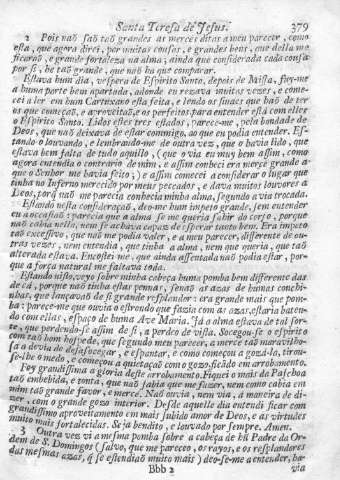 Santa Teresa de Jesus. 379
2 Pois naõ saõ taõ grandes as merces ditas a meu parecer, como
esta, que agora direi, por muitas cousas, e grandes bens, que della me
ficaraõ, e grande fortaleza na alma; ainda que considerada cada cousa
por si, he taõ grande, que naõ ha que comparar.
Estava hum dia, vespera de Espirito Santo, depois de Missa, fuy-me
a huma parte bem apartada, adonde eu rezava muitas vezes, e come-
cei a ler em hum Cartuxano esta feita, e lendo os sinaes que haõ de ter
os que começaõ, e aproveitaõ, e os perfeitos para entender está com elles
o Espirito Santo. Lidos estes tres estados, pareceo-me, pela bondade de
Deos, que naõ deixava de estar commigo, ao que eu podia entender. Es-
tando-o louvando, e lembrando-me de outra vez, que o havia lido, que
estava bem falta de tudo aquillo, (que o via eu muy bem assim, como
agora entendia o contrario de mim, e assim conheci era merce grande a-
que o Senhor me havia feito;) e assim comecei a considerar o lugar que
tinha no Inferno merecido por meus peccados, e dava muitos louvores a
Deos, porq̃ naõ me parecia conhecia minha alma, segundo a via trocada.
Estando nesta consideraçaõ, deo-me hum impeto grande, sem entender
eu a occasiaõ: parecia que a alma se me queria sahir do corpo, porque
naõ cabia nella, nem se achava capaz de esperar tanto bem. Era impeto
taõ excessivo, que naõ me podia valer, e a meu parecer, differente de ou-
tras vezes, nem entendia, que tinha a alma, nem que queria, que taõ
alterada estava. Encostei me, que ainda assentada naõ podia estar, por-
que a força natural me faltava toda.
Estando nisto, vejo sobre minha cabeça huma pomba bem differente das
de cá, porque naõ tinha estas pennas, senaõ as azas de humas conchi-
nhas, que lançavaõ de si grande resplandor: era grande mais que pom-
ba: parece-me que ouvia o estrondo que fazia com as azas, estaria baten-
do com ellas, espaço de huma Ave Maria. Já a alma estava de tal sor-
te, que perdendo-se assim de si, a perdeo de vista. Socegou-se o espirito
com taõ bom hospede, que segundo meu parecer, a merce taõ maravilho-
sa a devia de desassocegar, e espantar, e como começou a gozá-la, tirou-
se-lhe o medo, e começou a quietaçaõ com o gozo, ficando em arrobamento.
Foy grandissima a gloria deste arrobamento. Fiquei o mais da Pascoa
taõ embebida, e tonta, que naõ sabia que me fazer, nem como cabia em
mim taõ grande favor, e merce. Naõ ouvia, nem via, a maneira de di-
zer, com o grande gozo interior. Desde aquelle dia entendi ficar com
grandissimo aproveitamento em mais subido amor de Deos, e as virtudes
muito mais fortalecidas. Seja bendito, e louvado por sempre. Amen.
3 Outra vez vi a mesma pomba sobre a cabeça de hũ Padre da Or-
dem de S. Domingos (salvo, que me pareceo, os rayos, e os resplandores
das mesmas azas, q̃ se estendiaõ muito mais) deo-se-me a entender, ha-
Bbb 2 via